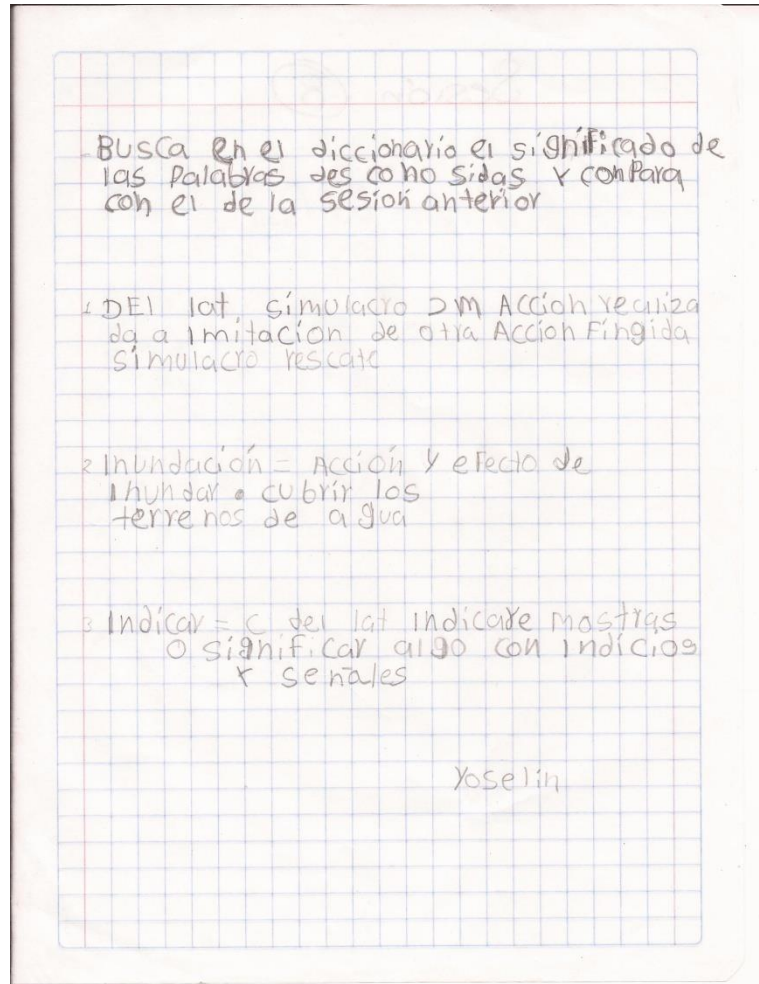 Busca en el diccionario el significado de
las palabras des cono sidas y conpara
con el de la sesion anterior
1 DEl lat. simulacro DM Acción realiza
da a imitación de otra Acción Fingida
simulacro rescate
2 Inundación = Acción y efecto de
inundar. cubrir los
terrenos de agua
3 Indicar = c del lat indicare mostras
o significar algo con indícios
y señales
Yoselin